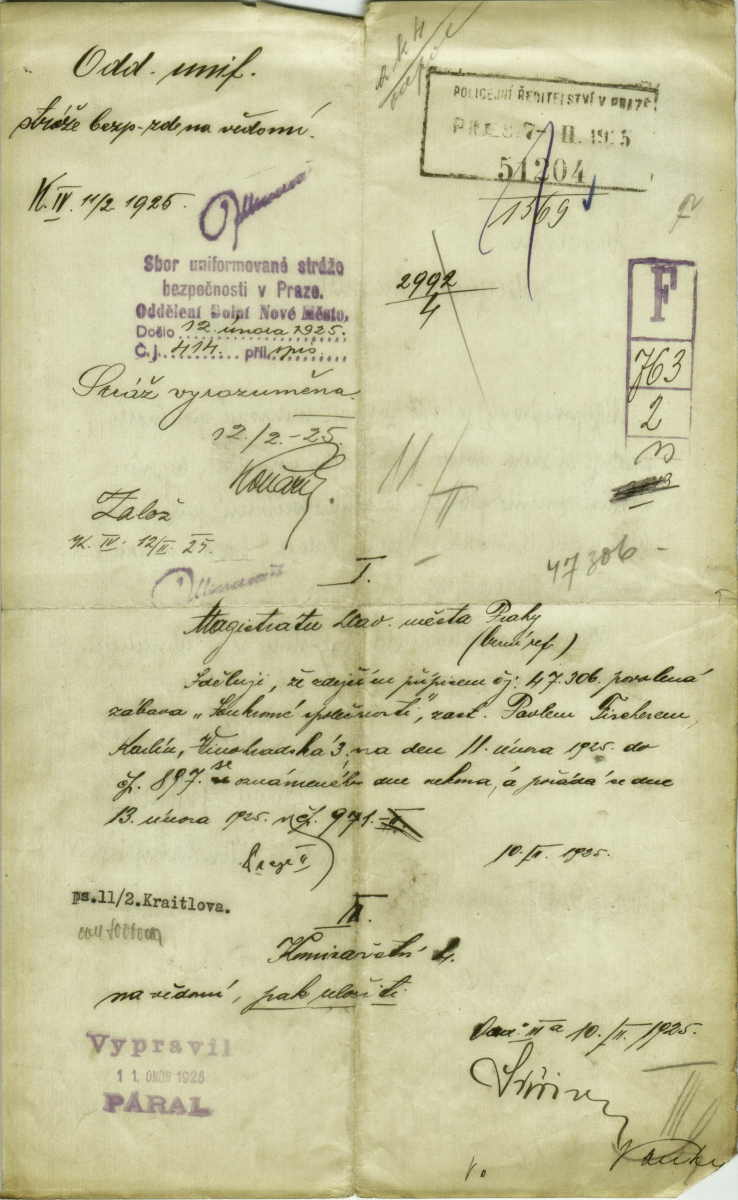 Odd. unif.
stráže bezp. zde na vědomí.
K. IV. 11/2 1925.
POLICEJNÍ ŘEDITELSTVÍ V PRAZE
PRES. 7- II. 1925
51204
1369
2992
4
F
763
2
Sbor uniformované stráže
bezpečnosti v Praze.
Oddělení Dolní Nové Město.
Došlo 12. února 1925.
Č. j. 414. příl. spis
Stráž vyrozuměna.
12./2.-25.
11./II
Založ
K. IV. 12/II. 25.
47306
I.
Magistrátu hlav. města Prahy
(berní ref.)
Sděluji, že zdejším přípisem čj: 47.306. povolená
zábava „Soukromé společnosti", zast. Pavlem Fischerem,
Karlín, 3, na den 11. února 1925. do
čp. 897. se oznámeného dne nekoná, a pořádá se dne
13. února 1925. v čp. 971.-II.
Praze II
10./II. 1925.
ps.11/2.Kraitlova.
II.
na vědomí, pak uložiti.
10./II. 1925.
Vypravil
11. ÚNOR 1925
PÁRAL